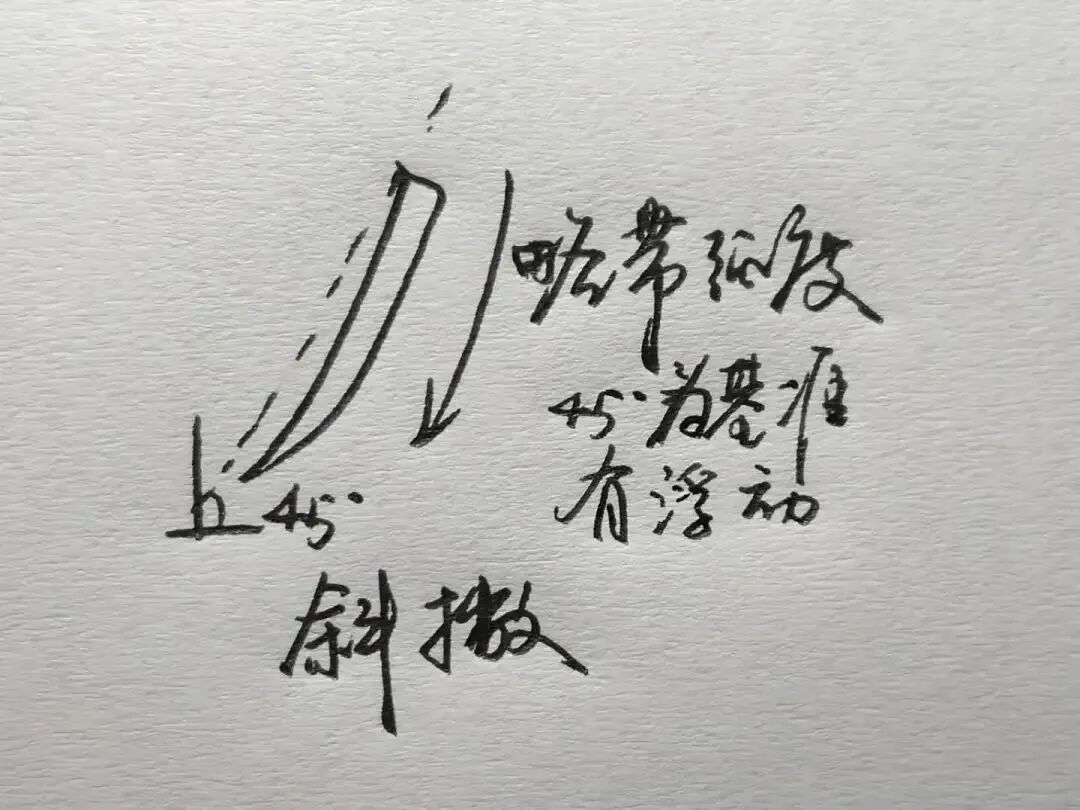 略带弧度
45°为基准
有浮动
45°
斜撇